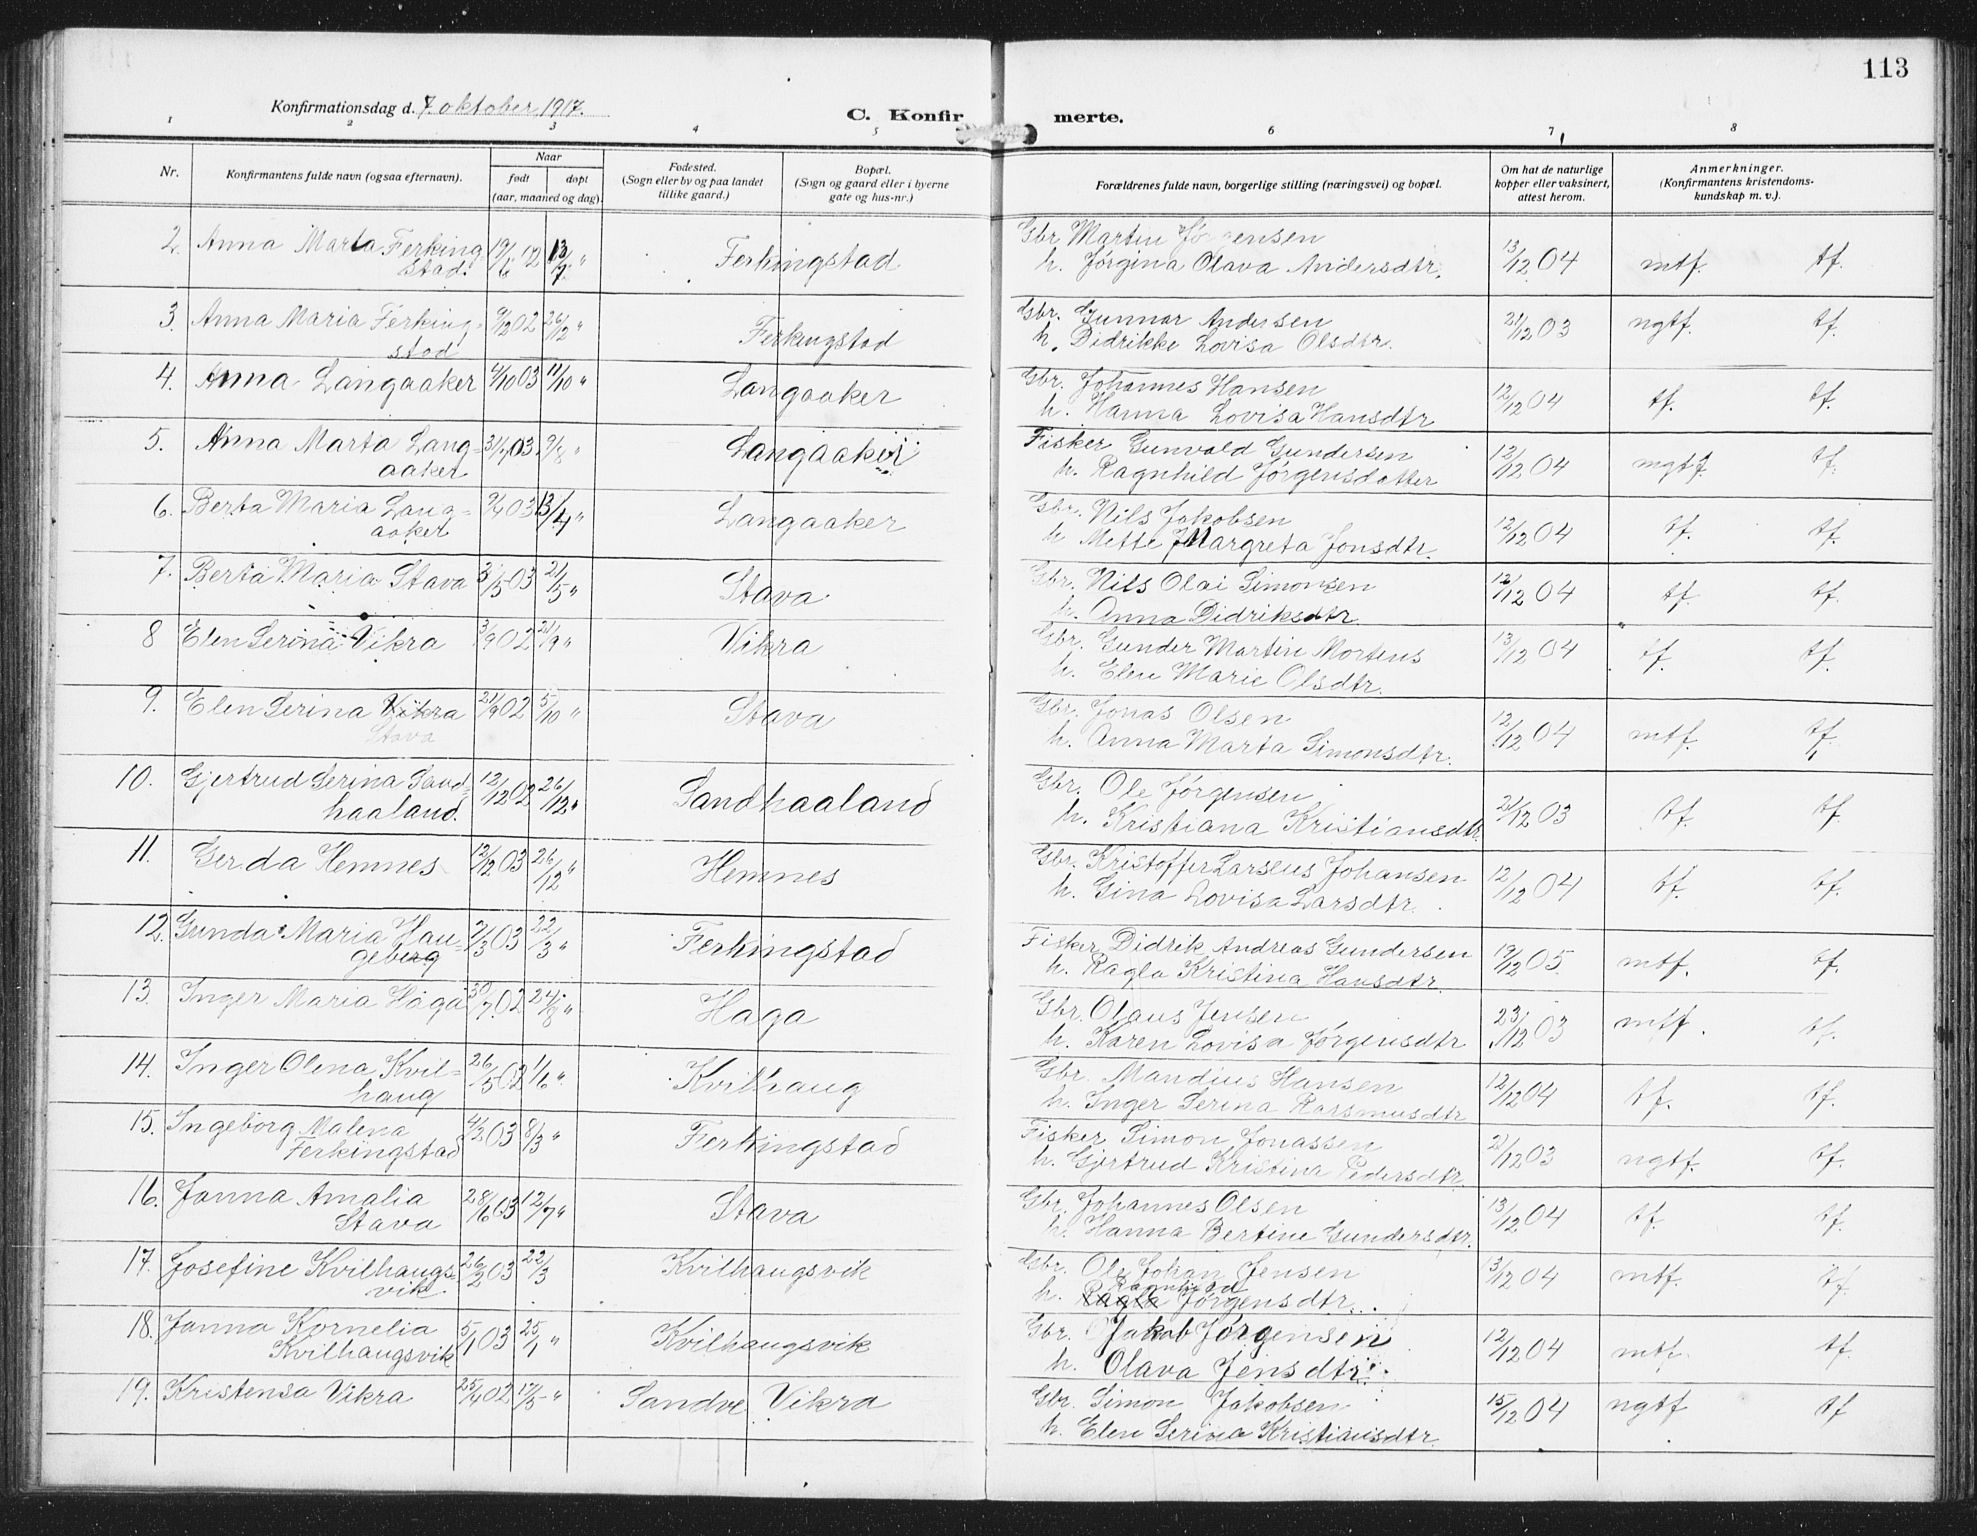 113
Konfirmationsdag d. 7. oktober 1917.
C. Konfirmerte.
1 2 3 4 5 6 7 8
Nr.
Konfirmantens fulde navn (ogsaa efternavn).
Naar
født
døpt
(aar, maaned og dag).
Fødested.
(Sogn eller by og paa landet
tillike gaard.)
Bopæl.
(Sogn og gaard eller i byerne
gate og hus-nr.)
Forældrenes fulde navn, borgerlige stilling (næringsvei) og bopæl.
Om hat de naturlige
kopper eller vaksinert,
attest herom.
Anmerkninger.
(Konfirmantens kristendoms-
kundskap m. v.).
2. Anna Marta Ferking 19/6 02 13/7 " Ferkingstad Gbr. Martin Jørgensen 13/12 04 mtf. tf.
stad. h. Jørgina Olava Andersdtr.
3. Anna Maria Ferking- 9/12 02 26/12 " Ferkingstad Gbr. Gunnar Andersen 21/12 03 ngtf. tf.
stad h. Didrikke Lovisa Olsdtr.
4. Anna Langaaker 4/10 03 11/10 " Langaaker Gbr. Johannes Hansen 12/12 04 tf. tf.
h. Hanna Lovisa Hansdtr
5. Anna Marta Lang- 31/7 03 9/8 " Langaaker Fisker Gunvald Gundersen 12/12 04 mgtf. tf.
aaker h. Ragnhild Jørgensdatter
6. Berta Maria Lang- 9/4 03 13/4 " Langaaker Gbr. Nils Jakobsen 12/12 04 tf. tf.
aaker h. Mette Margreta Jonsdtr.
7. Berta Maria Stava 3/5 03 21/5 " Stava Gbr. Nils Olai Simonsen 12/12 04 tf. tf.
h. Anna Didriksdtr
8 Elen Serina Vikra 3/9 02 21/9 " Vikra Gbr. Gunder Martin Mortens 13/12 04 tf. tf.
h. Elen Marie Olsdtr.
9. Elen Serina Vikra 21/9 02 5/10 " Stava Gbr. Jonas Olsen 12/12 04 mtf. tf.
Stava h. Anna Marta Simonsdtr.
10. Gjertrud Serina Sand- 12/12 02 26/12 " Sandhaaland Gbr. Ole Jørgensen 21/12 03 tf. tf.
haaland. h. Kristiana Kristiansdtr.
11. Gerda Hemnes 12/12 03 26/12 " Hemnes Gbr. Kristoffer Larseus Johansen 12/12 04 tf. tf.
h. Gina Lovisa Larsdtr.
12. Gunda Maria Hau- 7/3 03 22/3 " Ferkingstad Fisker Didrik Andreas Gundersen 19/12 05. mtf. tf.
geberg h. Ragla Kristina Hansdtr.
13. Inger Maria Haga 30/7 02 24/8 " Haga Gbr. Olaus Jensen 23/12 03 mtf. tf.
h. Karen Lovisa Jørgensdtr
14. Inger Olena Kvil- 26/5 02 1/6 " Kvilhaug Gbr. Mandius Hansen 12/12 04 tf. tf.
haug h. Inger Serina Rasmusdtr
15. Ingeborg Malena 4/2 03 8/3 " Ferkingstad Fisker Simon Jonassen 21/12 03 ngtf. tf.
Ferkingstad h. Gjertrud Kristina Pedersdtr.
16. Janna Amalia 28/6 03 12/7 " Stava Gbr. Johannes Olsen 13/12 04 tf. tf.
Stava h. Hanna Bertine Gundersdtr.
17. Josefine Kvilhaugs- 26/2 03 22/3 Kvilhaugsvik Gbr. Ole Johan Jensen 13/12 04 mtf. tf.
vik Ragnhild
h. Ragla Jørgensdtr.
18. Janna Kornelia 5/1 03 25/1 " Kvilhaugsvik Gbr. Jakob Jørgensen 12/12 04 mtf. tf.
Kvilhaugsvik h. Olava Jensdtr.
19. Kristensa Vikra 25/4 02 17/5 " Sandve Vikra Gbr. Simon Jakobsen 15/12 04 ngtf tf
h. Elen Serina Kristiansdtr.